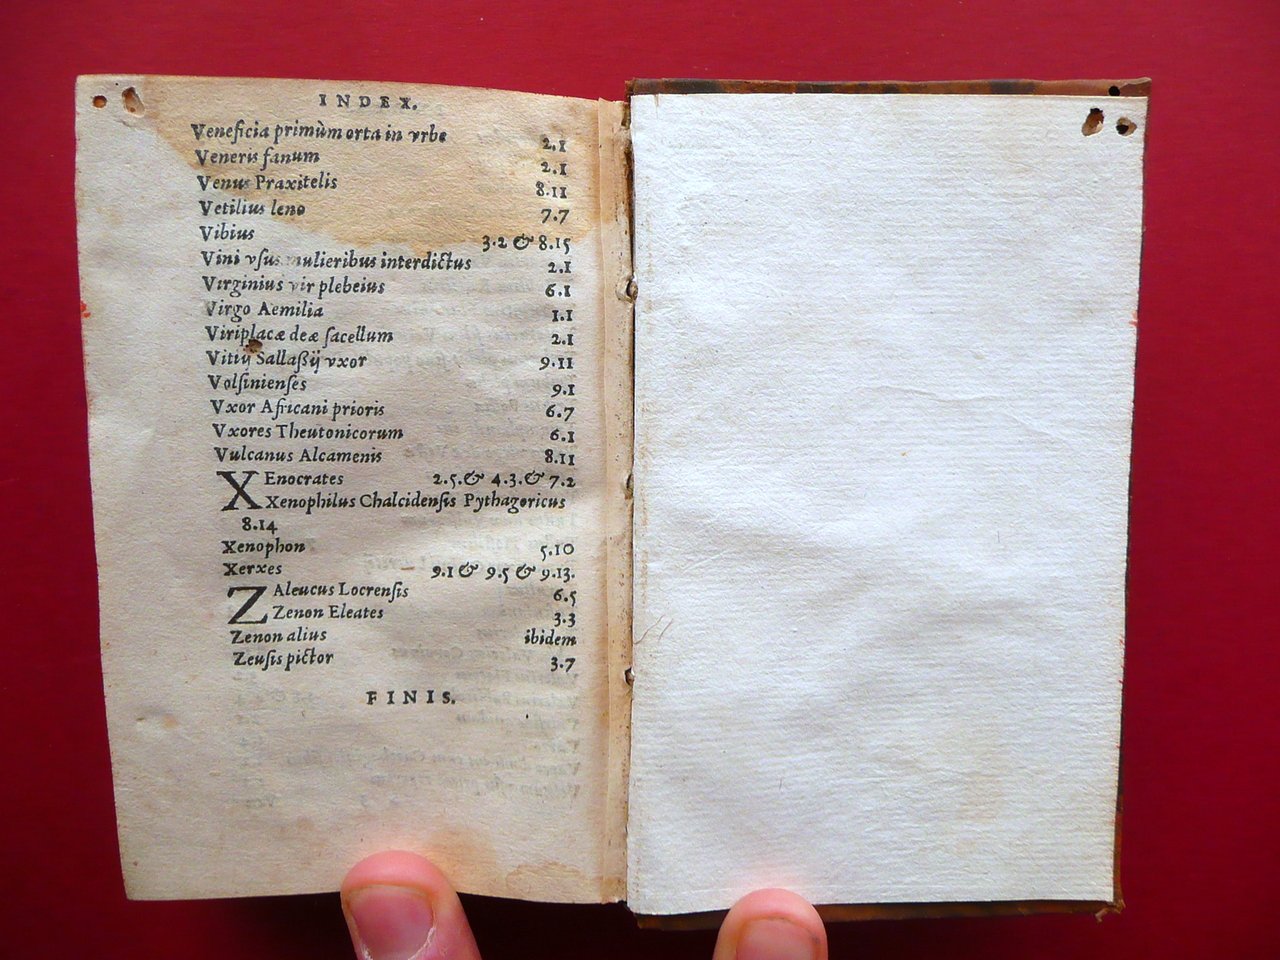 INDEX.
Veneficia primùm orta in vrbe 2.1
Veneris fanum 2.1
Venus Praxitelis 8.11
Vetilius leno 7.7
Vibius 3.2 & 8.15
Vini vſus mulieribus interdictus 2.1
Virginius vir plebeius 6.1
Virgo Aemilia 1.1
Viriplacæ deæ ſacellum 2.1
Vitij Sallaßij vxor 9.11
Volſinienſes 9.1
Vxor Africani prioris 6.7
Vxores Theutonicorum 6.1
Vulcanus Alcamenis 8.11
XEnocrates 2.5.& 4.3.& 7.2
Xenophilus Chalcidenſis Pythagoricus
8.14
Xenophon 5.10
Xerxes 9.1 & 9.5 & 9.13.
ZAleucus Locrenſis 6.5
Zenon Eleates 3.3
Zenon alius ibidem
Zeuſis pictor 3.7
FINIS.